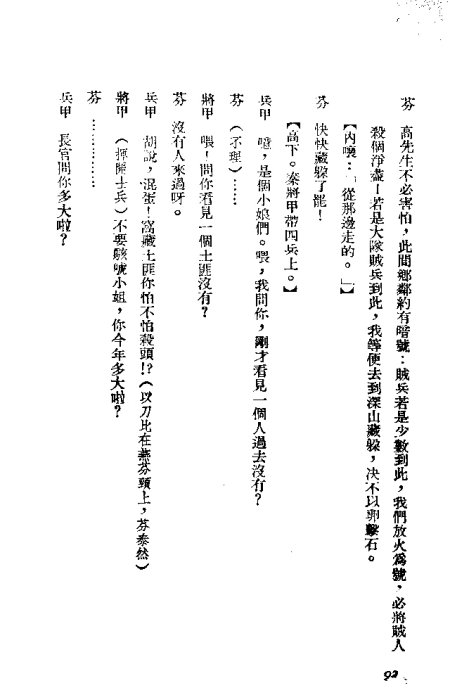 芬　高先生不必害怕，此間鄉鄰約有暗號：賊兵若是少數到此，我們放火爲號，必將賊人
殺個淨盡！若是大隊賊兵到此，我等便去到深山藏躲，决不以卵擊石。
【內嚷：「從那邊走的。」】
芬　快快藏躲了罷！
【高下。秦將甲帶四兵上。】
兵甲　噫，是個小娘們。喂，我問你，剛才看見一個人過去沒有？
芬　（不理）……
將甲　喂！問你看見一個土匪沒有？
芬　沒有人來過呀。
兵甲　胡說，混蛋！窩藏土匪你怕不怕殺頭！？（以刀比在燕芬頸上，芬泰然）
將甲　（揮開士兵）不要駭唬小姐，你今年多大啦？
芬　……………
兵甲　長官問你多大啦？
92